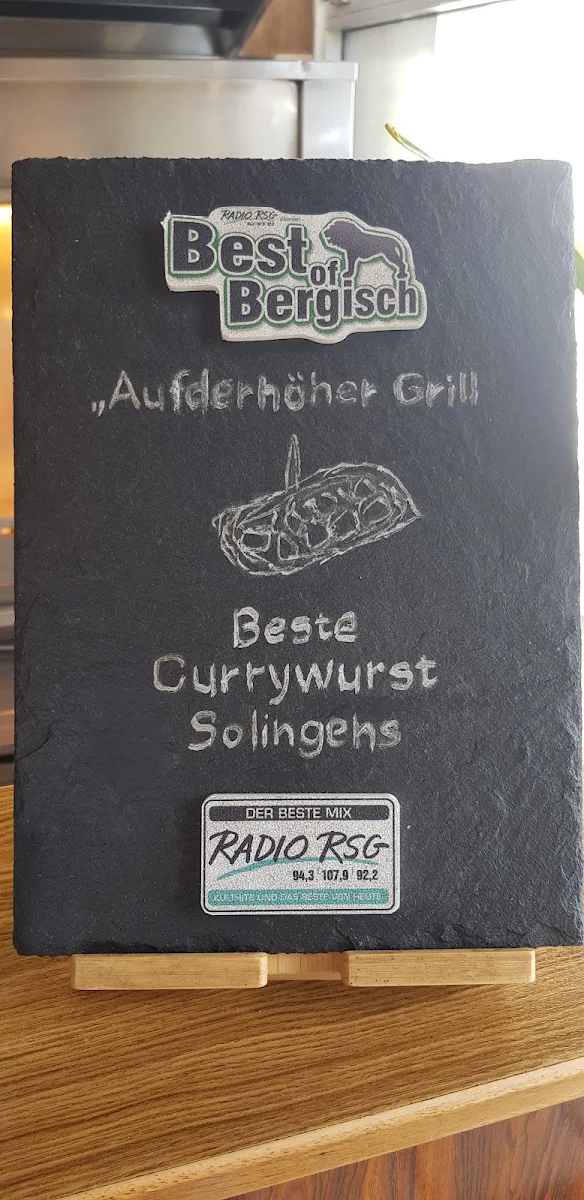 RADIO RSG
Best
of
Bergisch
„Aufderhöher Grill
Beste
Currywurst
Solingens
DER BESTE MIX
RADIO RSG
94,3 107,9 92,2
KULTHITS UND DAS BESTE VON HEUTE